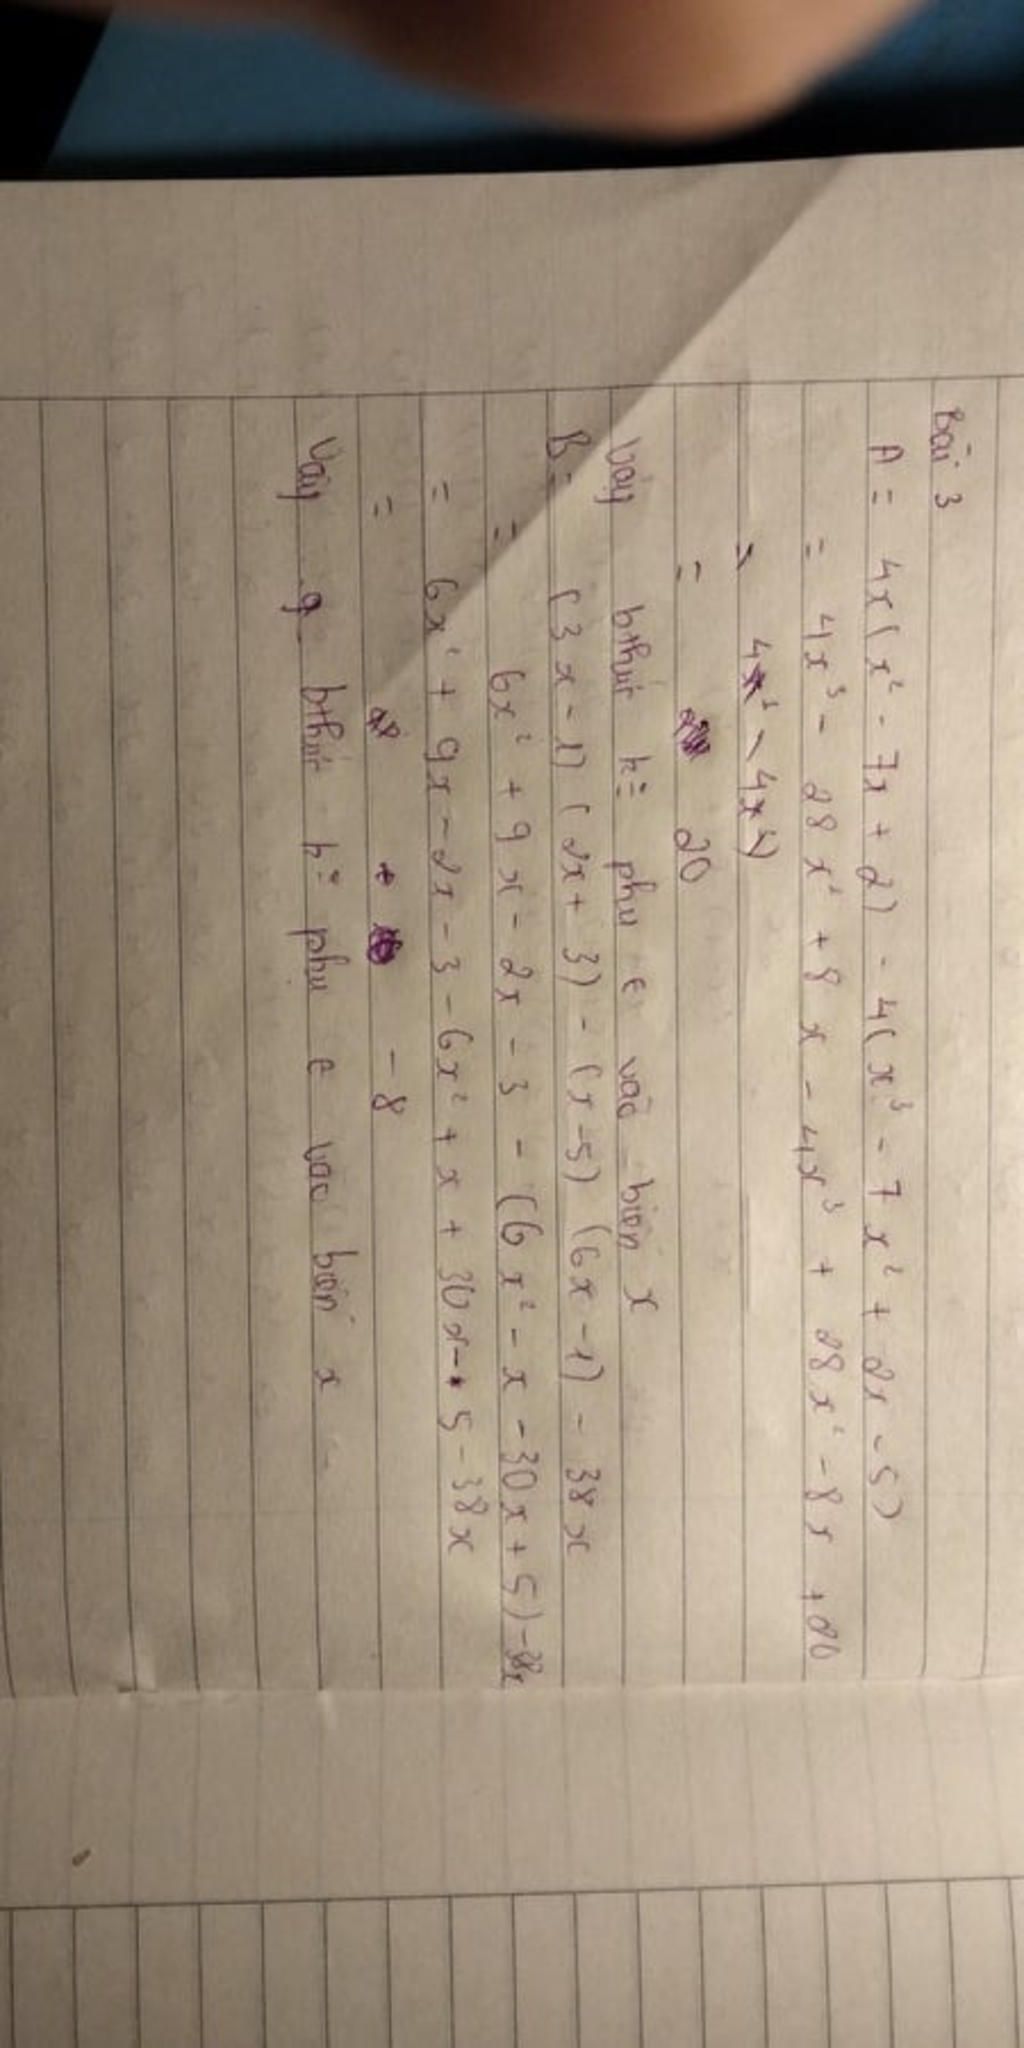 Bài 3
A = 4x(x² - 7x + 2) - 4(x³ - 7x² + 2x - 5)
= 4x³ - 28x² + 8x - 4x³ + 28x² - 8x + 20
= 4x³ - 4x³)
= 20
Vậy bthức k= phụ ∈ vào biến x
B = (3x - 1)(2x + 3) - (x - 5)(6x - 1) - 38x
= 6x² + 9x - 2x - 3 - (6x² - x - 30x + 5) - 38x
= 6x² + 9x - 2x - 3 - 6x² + x + 30x - 5 - 38x
= - 8
Vậy g bthức k= phụ ∈ vào biến x